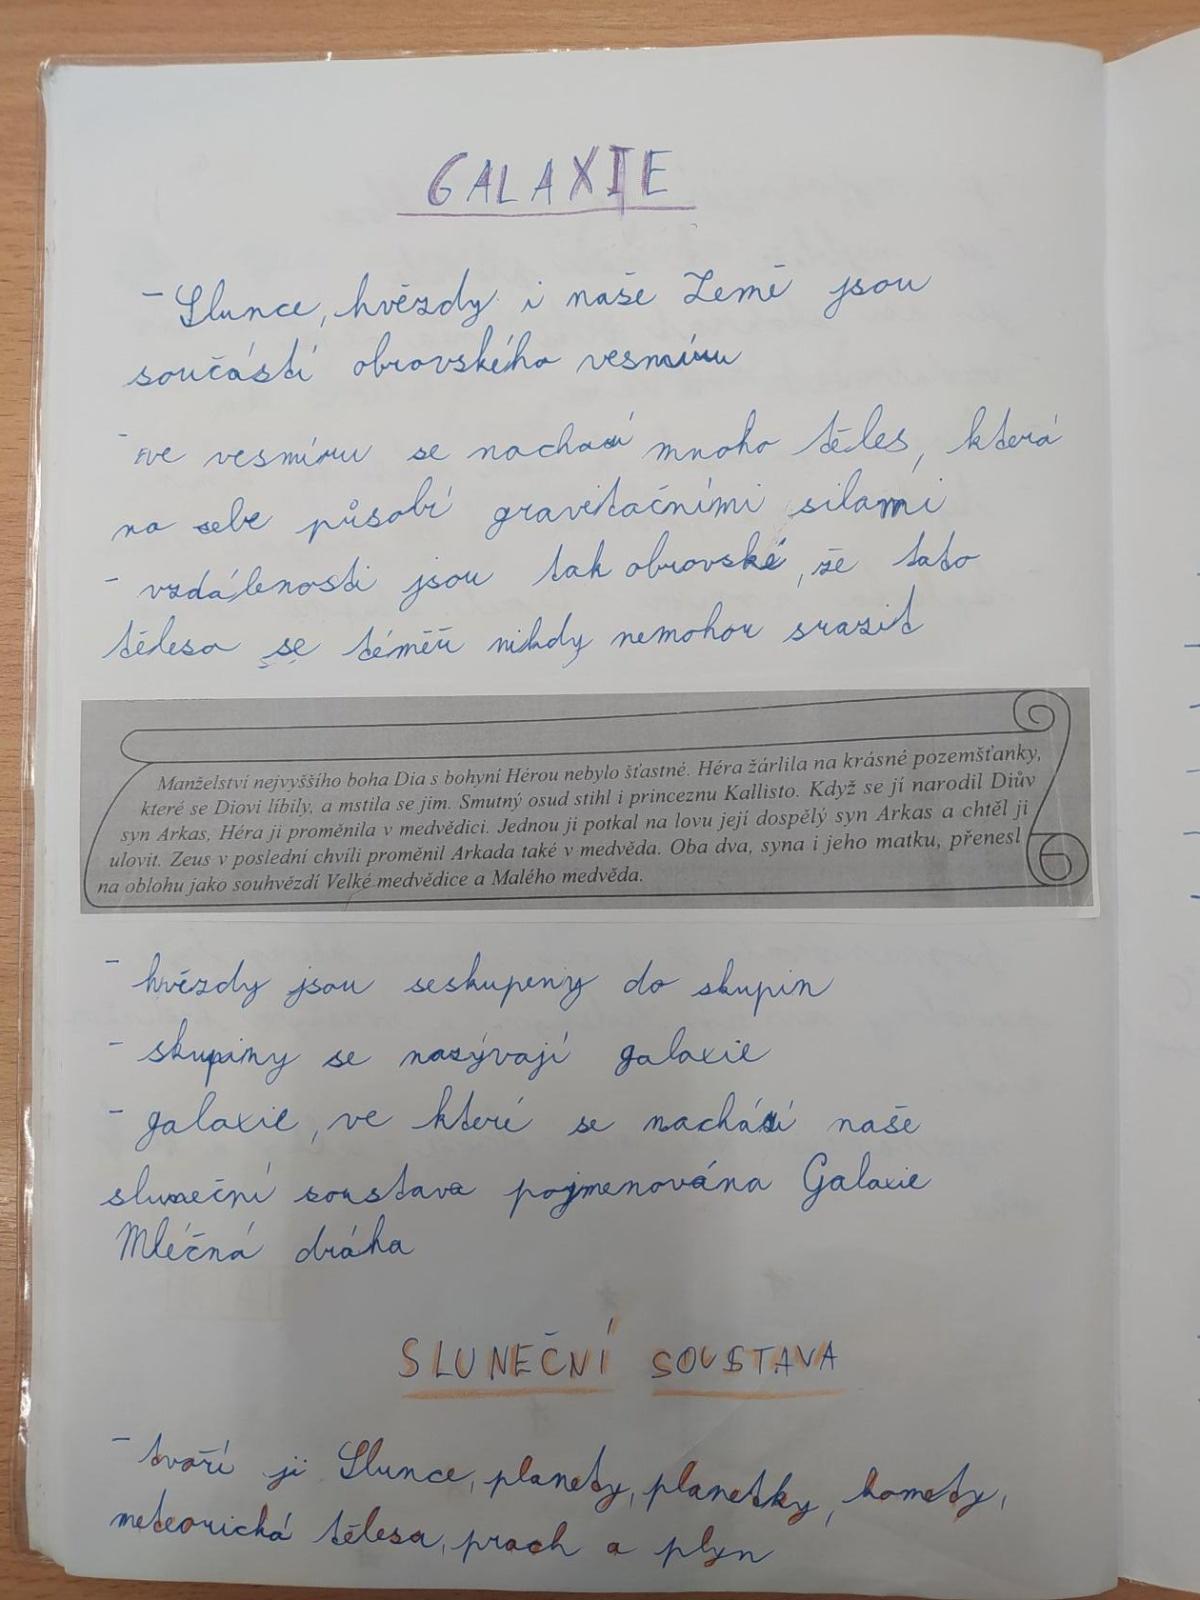 GALAXIE
- Slunce, hvězdy i naše Země jsou
součástí obrovského vesmíru
- ve vesmíru se nachází mnoho těles, která
na sebe působí gravitačními silami
- vzdálenosti jsou tak obrovské, že tato
tělesa se téměř nikdy nemohou srazit
Manželství nejvyššího boha Dia s bohyní Hérou nebylo šťastné. Héra žárlila na krásné pozemšťanky,
které se Diovi líbily, a mstila se jim. Smutný osud stihl i princeznu Kallisto. Když se jí narodil Diův
syn Arkas, Héra ji proměnila v medvědici. Jednou ji potkal na lovu její dospělý syn Arkas a chtěl ji
ulovit. Zeus v poslední chvíli proměnil Arkada také v medvěda. Oba dva, syna i jeho matku, přenesl
na oblohu jako souhvězdí Velké medvědice a Malého medvěda.
- hvězdy jsou seskupeny do skupin
- skupiny se nazývají galaxie
- galaxie, ve které se nachází naše
sluneční soustava pojmenována Galaxie
Mléčná dráha
SLUNEČNÍ SOUSTAVA
- tvoří ji Slunce, planety, planetky, komety,
meteorická tělesa, prach a plyn